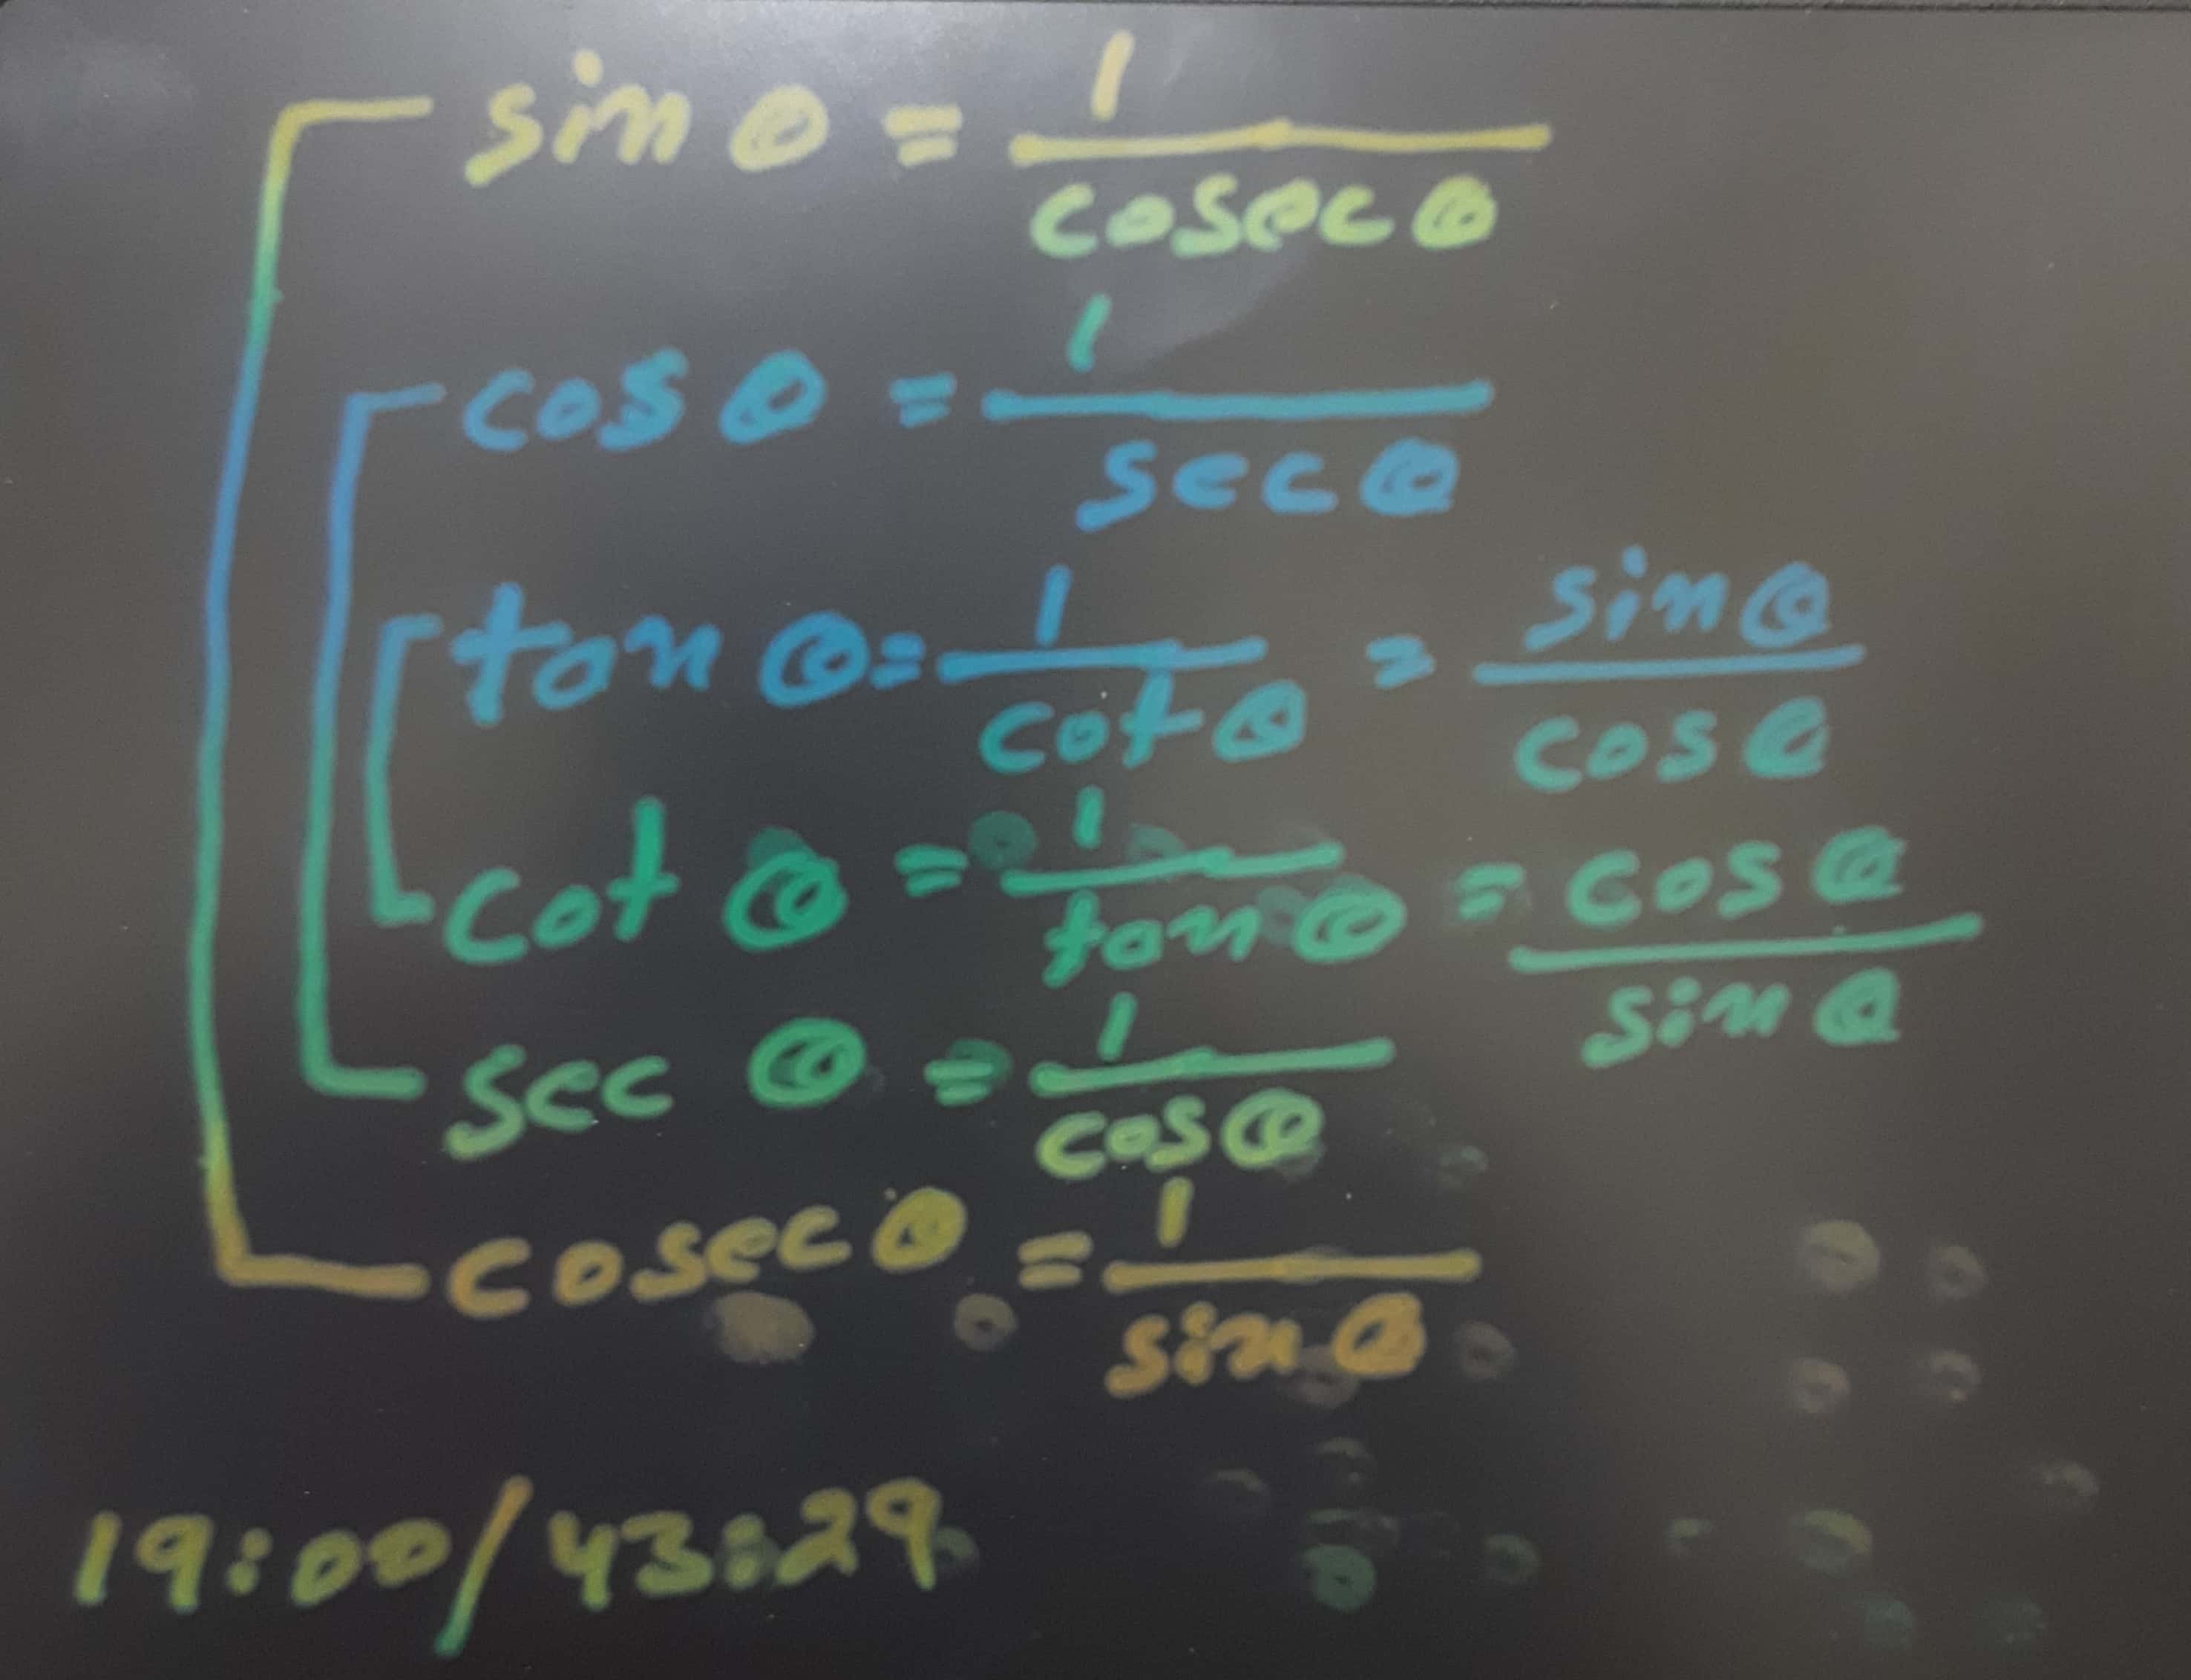 sin θ = 1/cosec θ
cos θ = 1/sec θ
tan θ = 1/cot θ = sin θ/cos θ
cot θ = 1/tan θ = cos θ/sin θ
sec θ = 1/cos θ
cosec θ = 1/sin θ
19:00/43:29